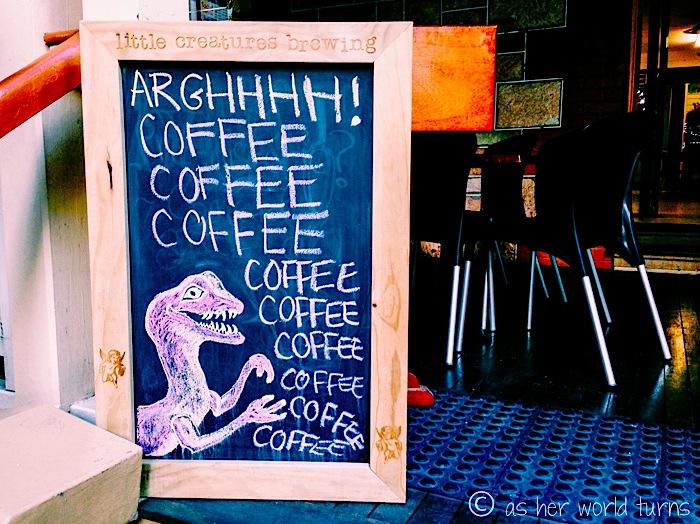 little creatures brewing
ARGHHHH!
COFFEE
COFFEE
COFFEE
COFFEE
COFFEE
COFFEE
COFFEE
COFFEE
COFFEE
© as her world turns